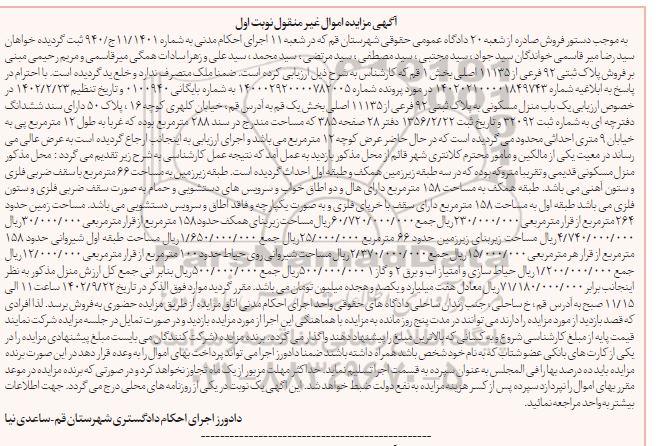 آگهی مزایده اموال غیر منقول نوبت اول
به موجب دستور فروش صادره از شعبه ۲۰ دادگاه عمومی حقوقی شهرستان قم که در شعبه ۱۱ اجرای احکام مدنی به شماره ۱۱/۱۴۰۱ج/۹۴۰ ثبت گردیده خواهان
سید رضا میر قاسمی خواندگان سید جواد، سید مجتبی، سید مصطفی، سید مرتضی، سید محمد، سید علی و زهرا سادات همگی میرقاسمی و مریم رحیمی مبنی
بر فروش پلاک ثبتی ۹۲ فرعی از ۱۱۱۳۵ اصلی بخش ۱ قم که کارشناس به شرح ذیل ارزیابی کرده است. ضمنا ملک متصرف ندارد و خلع ید گردیده است. با احترام در
پاسخ به ابلاغیه شماره ۱۴۰۲۰۲۱۰۰۰۰۱۸۴۹۷۴۳ در مورد پرونده شماره ۱۴۰۰۰۲۹۲۰۰۰۰۷۸۲۰۰۵ به شماره بایگانی ۰۱۰۰۹۴۰ و تاریخ تنظیم ۱۴۰۲/۲/۲۳ در
خصوص ارزیابی یک باب منزل مسکونی به پلاک ثبتی ۹۲ فرعی از ۱۱۱۳۵ اصلی بخش یک قم به آدرس قم، خیابان کلهری کوچه ۱۶، پلاک ۵۰ دارای سند ششدانگ
دفترچه ای به شماره ثبت ۳۲۰۹۲ و تاریخ ثبت ۱۳۵۶/۲/۲۲ دفتر ۲۸ صفحه ۳۸۵ که مساحت مندرج در سند ۲۸۸ مترمربع بوده که غربا به طول ۱۲ مترمربع پی به
خیابان ۹ متری احداثی محدود می گردیده است که در حال حاضر عرض کوچه ۱۲ مترمربع می باشد و اجرای ارزیابی به اینجانب ارجاع گردیده است به عرض عالی می
رساند در معیت یکی از مالکین و مامور محترم کلانتری شهر قائم از محل مذکور بازدید به عمل آمد که نتیجه عمل کارشناسی به شرح زیر تقدیم می گردد: محل مذکور
منزل مسکونی قدیمی و تقریبا متروکه بوده که در سه طبقه زیرزمین همکف و طبقه اول احداث گردیده است. طبقه زیرزمین به مساحت ۶۶ مترمربع با سقف ضربی فلزی
و ستون آهنی می باشد. طبقه همکف به مساحت ۱۵۸ مترمربع دارای هال و دو اطاق خواب و سرویس های دستشویی و حمام به صورت سقف ضربی فلزی و ستون
فلزی می باشد طبقه اول به مساحت ۱۵۸ مترمربع دارای سقف با خرپای فلزی و به صورت یکپارچه و فاقد اطاق و سرویس دستشویی می باشد. مساحت زمین حدود
۲۶۴ مترمربع از قرار مترمربعی ۲۳۰/۰۰۰/۰۰۰ ریال جمع ۶۰/۷۲۰/۰۰۰/۰۰۰ ریال مساحت زیربنای همکف حدود ۱۵۸ مترمربع از قرار مترمربعی ۳۰/۰۰۰/۰۰۰ ریال
۴/۷۴۰/۰۰۰/۰۰۰ ریال مساحت زیربنای زیرزمین حدود ۶۶ مترمربع ۲۵/۰۰۰/۰۰۰ ریال جمع ۱/۶۵۰/۰۰۰/۰۰۰ ریال مساحت طبقه اول شیروانی حدود ۱۵۸
مترمربع از قرار هر مترمربعی ۱۵/۰۰۰/۰۰۰ ریال جمع ۲/۳۷۰/۰۰۰/۰۰۰ ریال مساحت شیروانی روی حیاط حدود ۱۰۰ مترمربع از قرار مترمربعی ۱۲/۰۰۰/۰۰۰ ریال
جمع ۱/۲۰۰/۰۰۰/۰۰۰ ریال حیاط سازی و امتیاز آب و برق ۲ و گاز ۱ ۵۰۰/۰۰۰/۰۰۰ ریال جمع ۵۰۰/۰۰۰/۰۰۰ ریال بنابر انی جمع کل ارزش منزل مذکور به نظر
اینجانب برابر ۷۱/۱۸۰/۰۰۰/۰۰۰ ریال معادل هفت میلیارد و یکصد و هجده میلیون تومان می باشد. مقرر گردید موارد فوق الذکر در تاریخ ۱۴۰۲/۹/۲۲ ساعت ۱۱ الی
۱۱/۱۵ صبح به آدرس قم، خ ساحلی، جنب زندان ساحلی دادگاه های حقوقی واحد اجرای احکام مدنی اتاق مزایده از طریق مزایده حضوری به فروش برسد. لذا افرادی
که قصد بازدید از مورد مزایده را دارند می توانند در مدت پنج روز مانده به مزایده با هماهنگی این اجرا از مورد مزایده بازدید و در صورت تمایل در جلسه مزایده شرکت نمایند
قیمت پایه از مبلغ کارشناسی شروع و به کسانی که بالاترین مبلغ را پیشنهاد دهند واگذار می گردد. برنده مزایده (شرکت کنندگان می بایست مبلغ پیشنهادی مزایده را در
یکی از کارت های بانکی عضو شتاب که به نام خود شخص باشد همراه داشته باشند ضمنا دادورز اجرا می تواند پرداخت بهای اموال را به وعده قرار دهد در این صورت برنده
مزایده باید ده درصد بها را فی المجلس به عنوان سپرده به قسمت اجرا تسلیم نماید. حداکثر مهلت مزبور از یک ماه تجاوز نخواهد کرد و در صورتی که برنده مزایده در موعد
مقرر بهای اموال را نپردازد سپرده پس از کسر هزینه مزایده به نفع دولت ضبط خواهد شد. این آگهی یک نوبت در یکی از روزنامه های محلی درج می گردد. جهت اطلاعات
بیشتر به واحد مراجعه نمائید.
دادورز اجرای احکام دادگستری شهرستان قم - ساعدی نیا